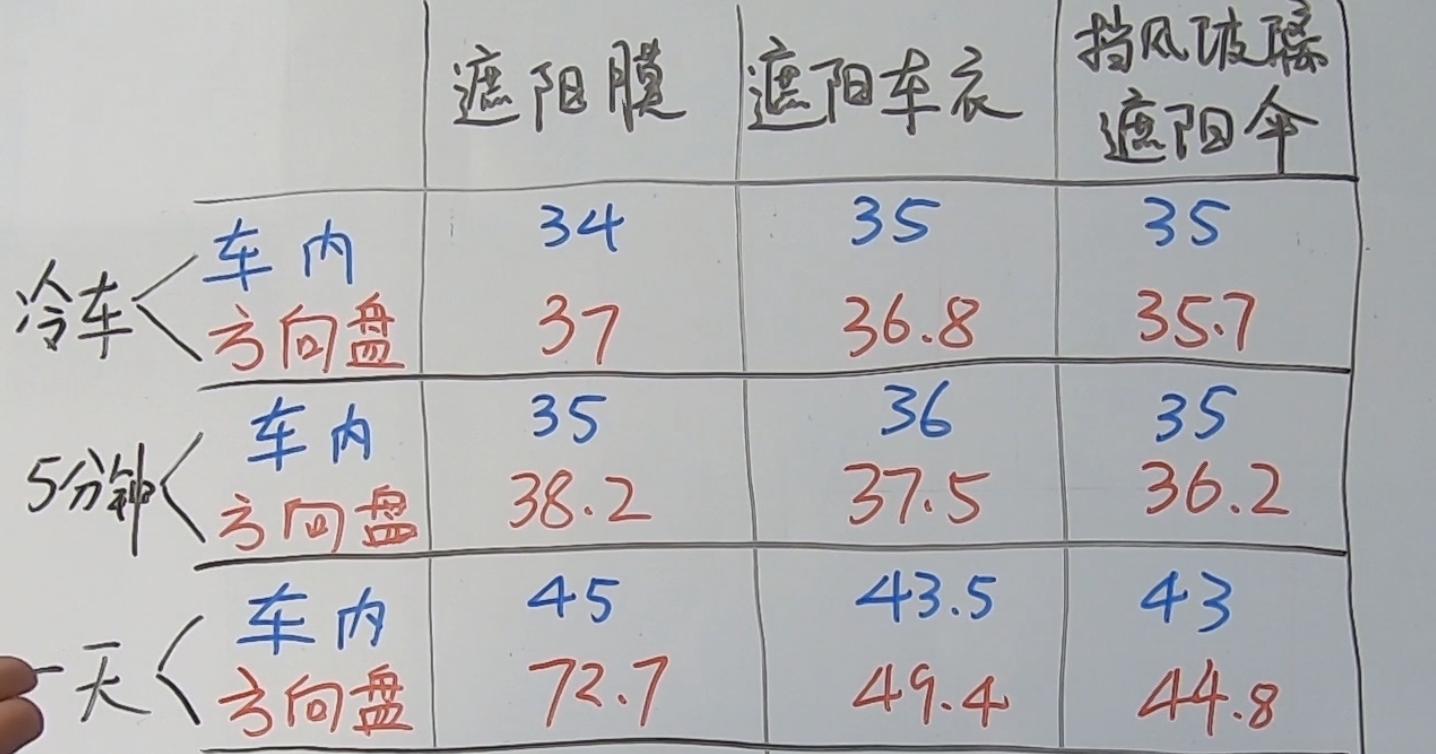 遮阳膜 遮阳车衣 挡风玻璃
遮阳伞
冷车 车内 34 35 35
方向盘 37 36.8 35.7
5分钟 车内 35 36 35
方向盘 38.2 37.5 36.2
一天 车内 45 43.5 43
方向盘 72.7 49.4 44.8